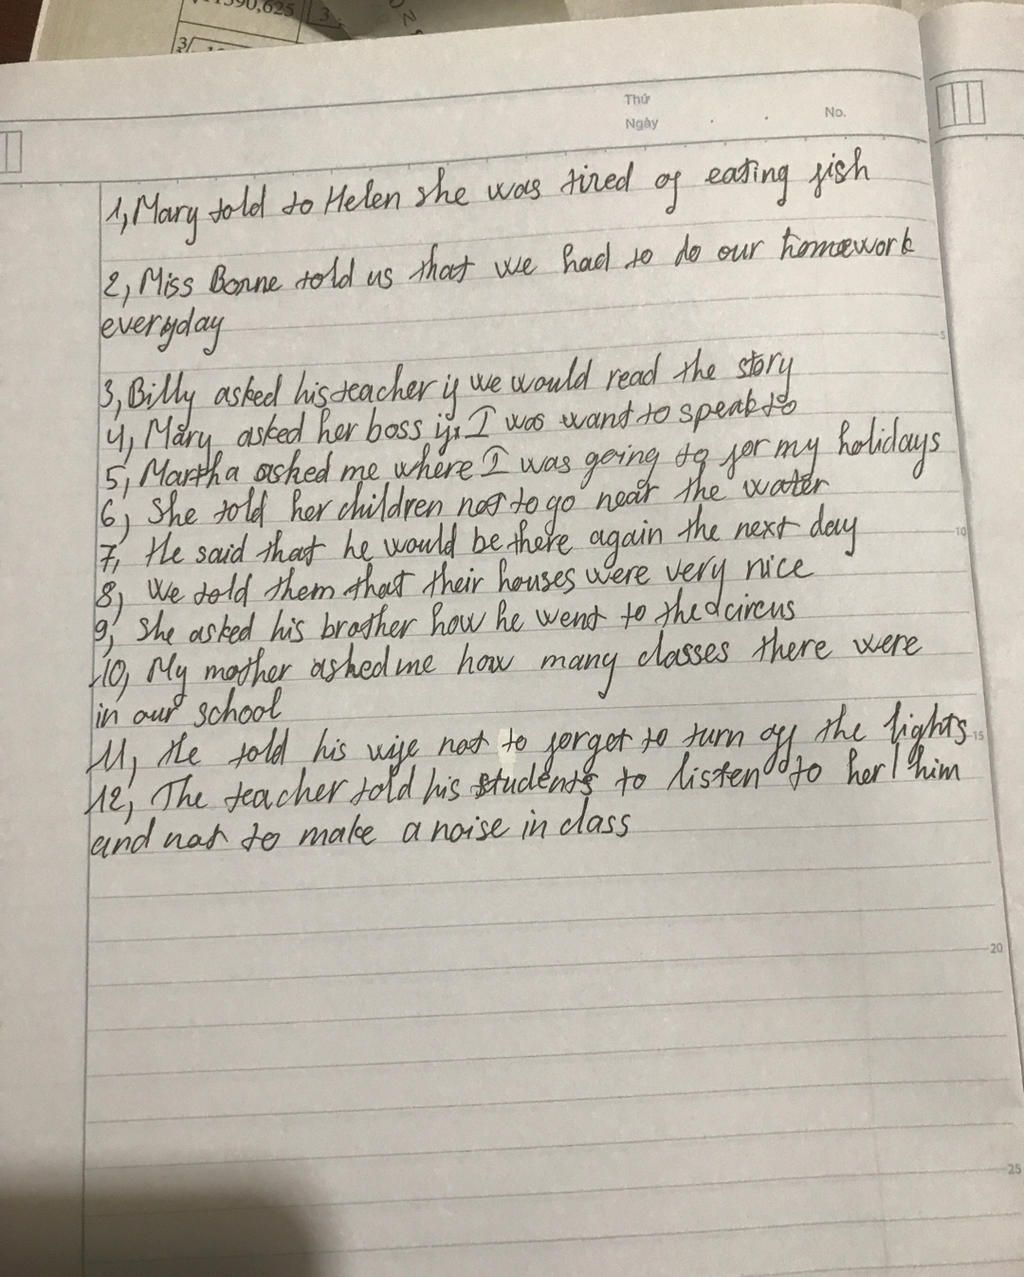 11390,625 3
3
Thứ
Ngày No.
1, Mary told to Helen she was tired of eating fish
2, Miss Borne told us that we had to do our homework
everyday
5
3, Billy asked his teacher if we would read the story
4, Mary asked her boss if I was want to speak to
5, Martha asked me where I was going to for my holidays
6, She told her children not to go near the water
7, He said that he would be there again the next day
10
8, We told them that their houses were very nice
9, She asked his brother how he went to the circus
10, My mother asked me how many classes there were
in our school
11, He told his wife not to forget to turn off the lights
15
12, The teacher told his students to listen to her/him
and not to make a noise in class
20
25